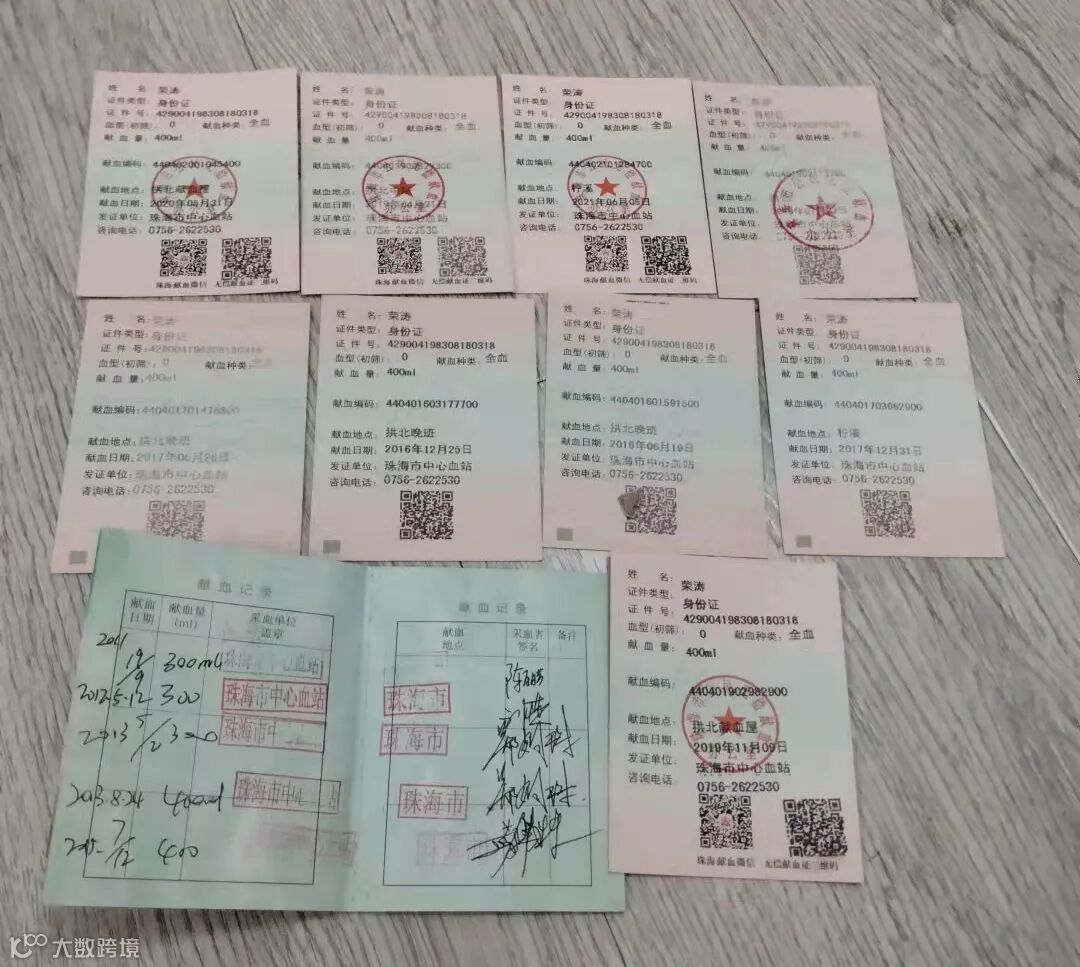 姓 名: 荣涛
证件类型: 身份证
证 件 号: 429004198308180318
血型(初筛): O 献血种类: 全血
献 血 量: 400ml
献血编码: 440402001945400
献血地点: 拱北献血屋
献血日期: 2020年05月31日
发证单位: 珠海市中心血站
咨询电话: 0756-2622530
珠海献血微信 无偿献血证二维码
姓 名: 荣涛
证件类型: 身份证
证 件 号: 429004198308180318
血型(初筛): O 献血种类: 全血
献 血 量: 400ml
献血编码:
献血地点:
献血日期: 2019年
发证单位: 珠海市中心血站
咨询电话: 0756-2622530
珠海献血微信 无偿献血证二维码
姓 名: 荣涛
证件类型: 身份证
证 件 号: 429004198308180318
血型(初筛): O 献血种类: 全血
献 血 量: 400ml
献血编码: 440402101284700
献血地点: 柠溪
献血日期: 2021年06月05日
发证单位: 珠海市中心血站
咨询电话: 0756-2622530
珠海献血微信 无偿献血证二维码
姓 名: 荣涛
证件类型: 身份证
证 件 号: 429004198308180318
血型(初筛): O 献血种类: 全血
献 血 量:
献血编码:
献血地点:
献血日期:
发证单位:
咨询电话:
办公室
姓 名: 荣涛
证件类型: 身份证
证 件 号: 429004198308180318
血型(初筛): O 献血种类: 全血
献 血 量: 400ml
献血编码: 440401701476800
献血地点: 拱北晚班
献血日期: 2017年06月26日
发证单位: 珠海市中心血站
咨询电话: 0756-2622530
姓 名: 荣涛
证件类型: 身份证
证 件 号: 429004198308180318
血型(初筛): O 献血种类: 全血
献 血 量: 400ml
献血编码: 440401603177700
献血地点: 拱北晚班
献血日期: 2016年12月25日
发证单位: 珠海市中心血站
咨询电话: 0756-2622530
姓 名: 荣涛
证件类型: 身份证
证 件 号: 429004198308180318
血型(初筛): O 献血种类: 全血
献 血 量: 400ml
献血编码: 440401601591500
献血地点: 拱北晚班
献血日期: 2016年06月19日
发证单位: 珠海市中心血站
咨询电话: 0756-2622530
姓 名: 荣涛
证件类型: 身份证
证 件 号: 429004198308180318
血型(初筛): O 献血种类: 全血
献 血 量: 400ml
献血编码: 440401703662900
献血地点: 柠溪
献血日期: 2017年12月31日
发证单位: 珠海市中心血站
咨询电话: 0756-2622530
献血记录
献血日期 献血量(ml) 采血单位盖章
2011 19/9 300ml 珠海市中心血站
2012.5.12 300 珠海市中心血站
2013 5/2 300 珠海市中
2013.8.24 400ml 珠海市中心
2015 7/12 400
献血记录
献血地点 采血者签名 备注
珠海市
珠海市
珠海市
姓 名: 荣涛
证件类型: 身份证
证 件 号: 429004198308180318
血型(初筛): O 献血种类: 全血
献 血 量: 400ml
献血编码: 440401902982900
献血地点: 拱北献血屋
献血日期: 2019年11月09日
发证单位: 珠海市中心血站
咨询电话: 0756-2622530
珠海献血微信 无偿献血证二维码
大数跨境